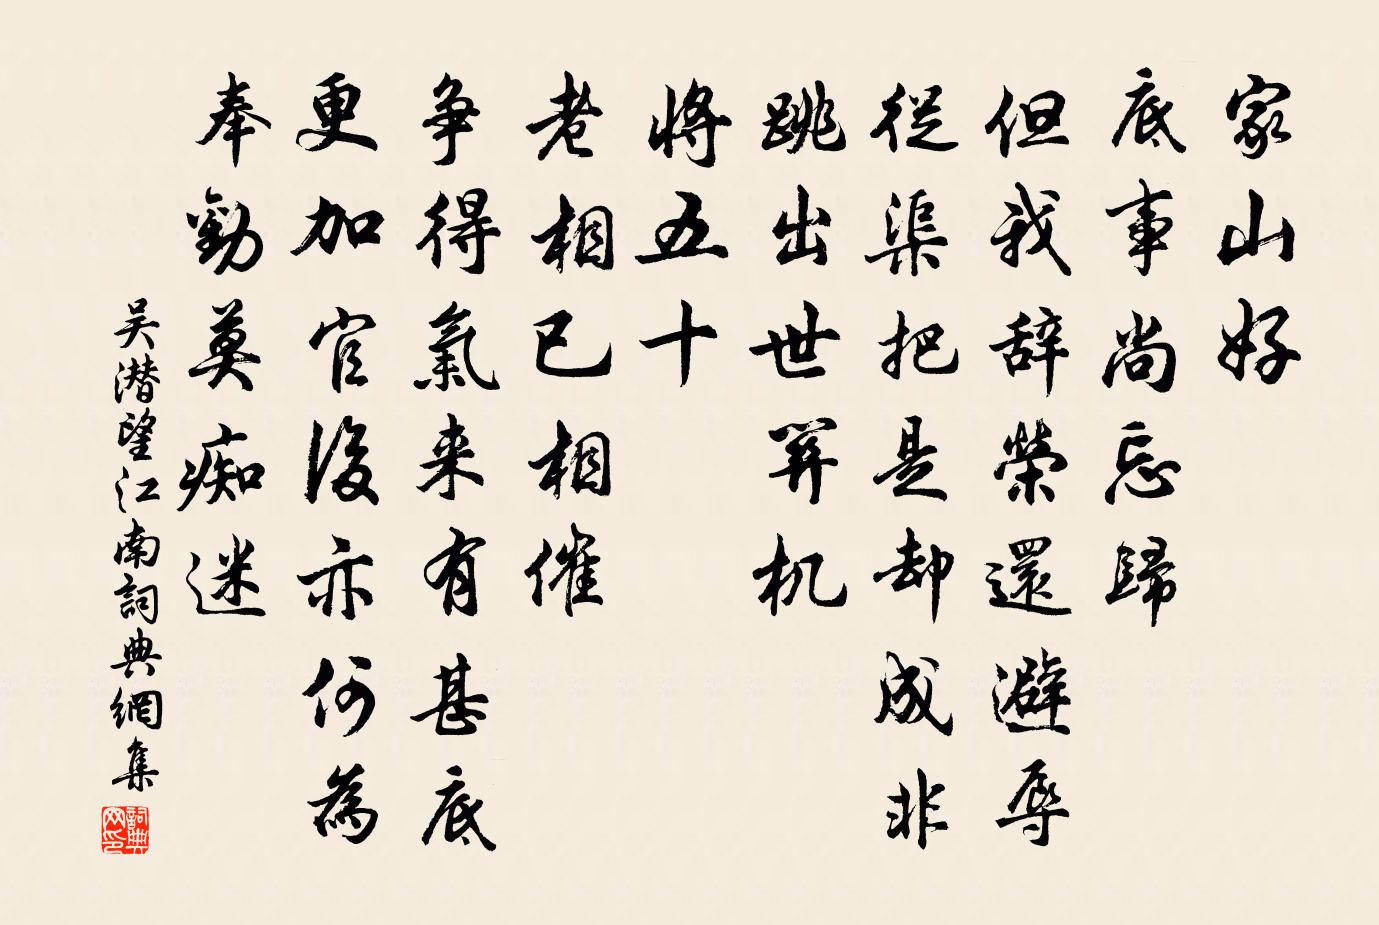 家山好
底事尚忘歸
但我辞榮還避辱
從渠把是却成非
跳出世關机
將五十
老相已相催
争得氣来有甚底
更加官後亦何為
奉勸莫痴迷
吴潜望江南詞典網集
詞典网印